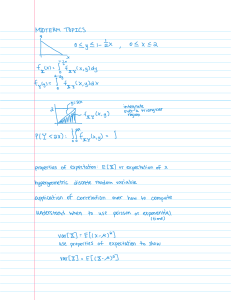 MIDTERM TOPICS
0 ≤ y ≤ 1 - ½x , 0 ≤ x ≤ 2
f_X(x) = ∫ f_XY(x,y)dy
f_Y(y) = ∫ f_XY(x,y)dx
y=2x
f_XY(x,y)
integrate over a triangular region
P(Y < 2X) : ∫∫ f_XY(x,y) =
properties of expectation E[X] or expectation of x
hypergeometric discrete random variable
application of correlation over how to compute
understand when to use poisson or exponential
(time)
var[X] = E[(X-μ)²]
use properties of expectation to show
var[X] = E[(X-μ)²]